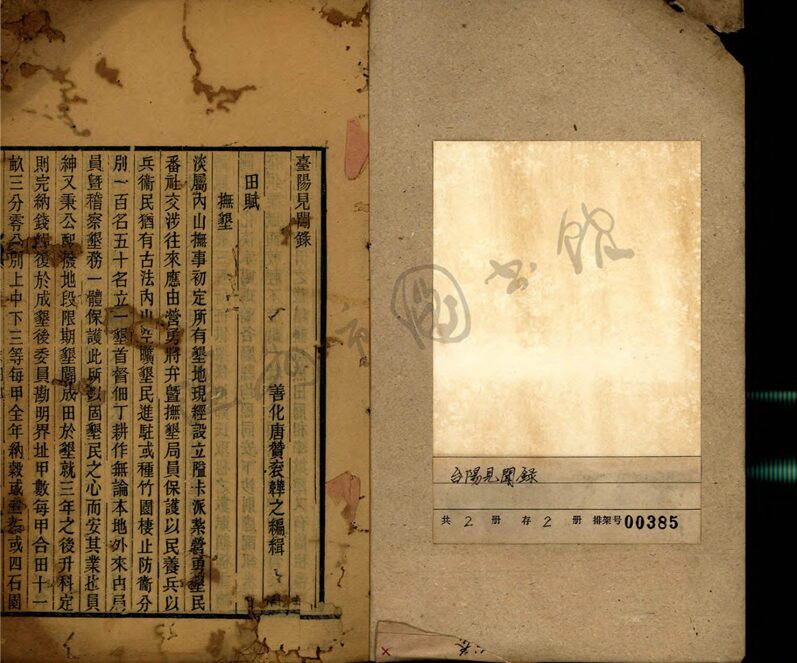 臺陽見聞錄
善化唐贊袞韡之編輯
田賦
撫墾
淡屬內山撫事初定所有墾地現經設立隘卡派紮營勇墾民
番社交涉往來應由營勇將弁曁撫墾局員保護以民養兵以
兵衞民猶有古法內山空曠墾民進駐或種竹圍棲止防衞分
別一百名五十名立一墾首督佃丁耕作無論本地外來由局
員曁稽察墾務一體保護此所以固墾民之心而安其業也員
紳又秉公酌撥地段限期墾闢成田於墾就三年之後升科定
則完納錢後於成墾後委員勘明界址甲數每甲合田十一
畝三分零分別上中下三等每甲全年納穀或石或四石園
图书馆
台陽見聞錄
共 2 册 存 2 册 排架号 00385